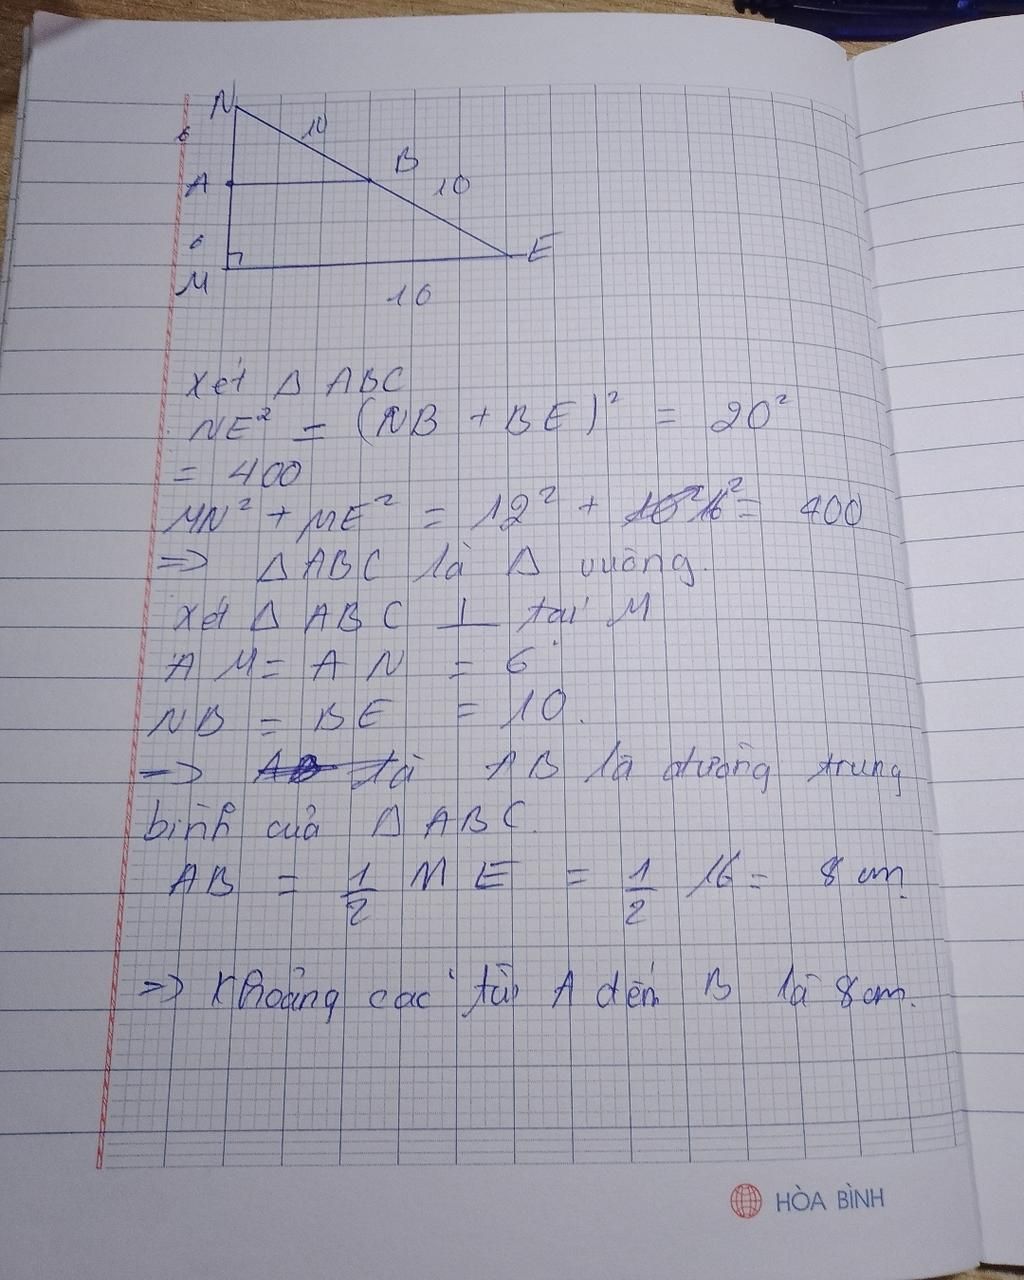 N
6
10
A
B
10
6
M
E
16
Xét Δ ABC
NE² = (NB + BE)² = 20²
= 400
MN² + ME² = 12² + 16² = 400
=> Δ ABC là Δ vuông.
Xét Δ ABC ⊥ tại M
AM = AN = 6
NB = BE = 10.
=> AB là đường trung
bình của Δ ABC.
AB = 1/2 ME = 1/2 16 = 8 cm.
=> Khoảng các từ A đến B là 8cm.
HÒA BÌNH